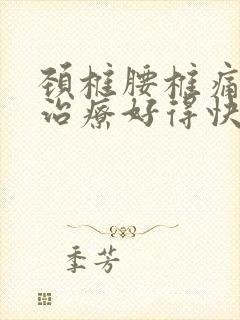 颈椎腰椎痛
治疗好得快
季芳